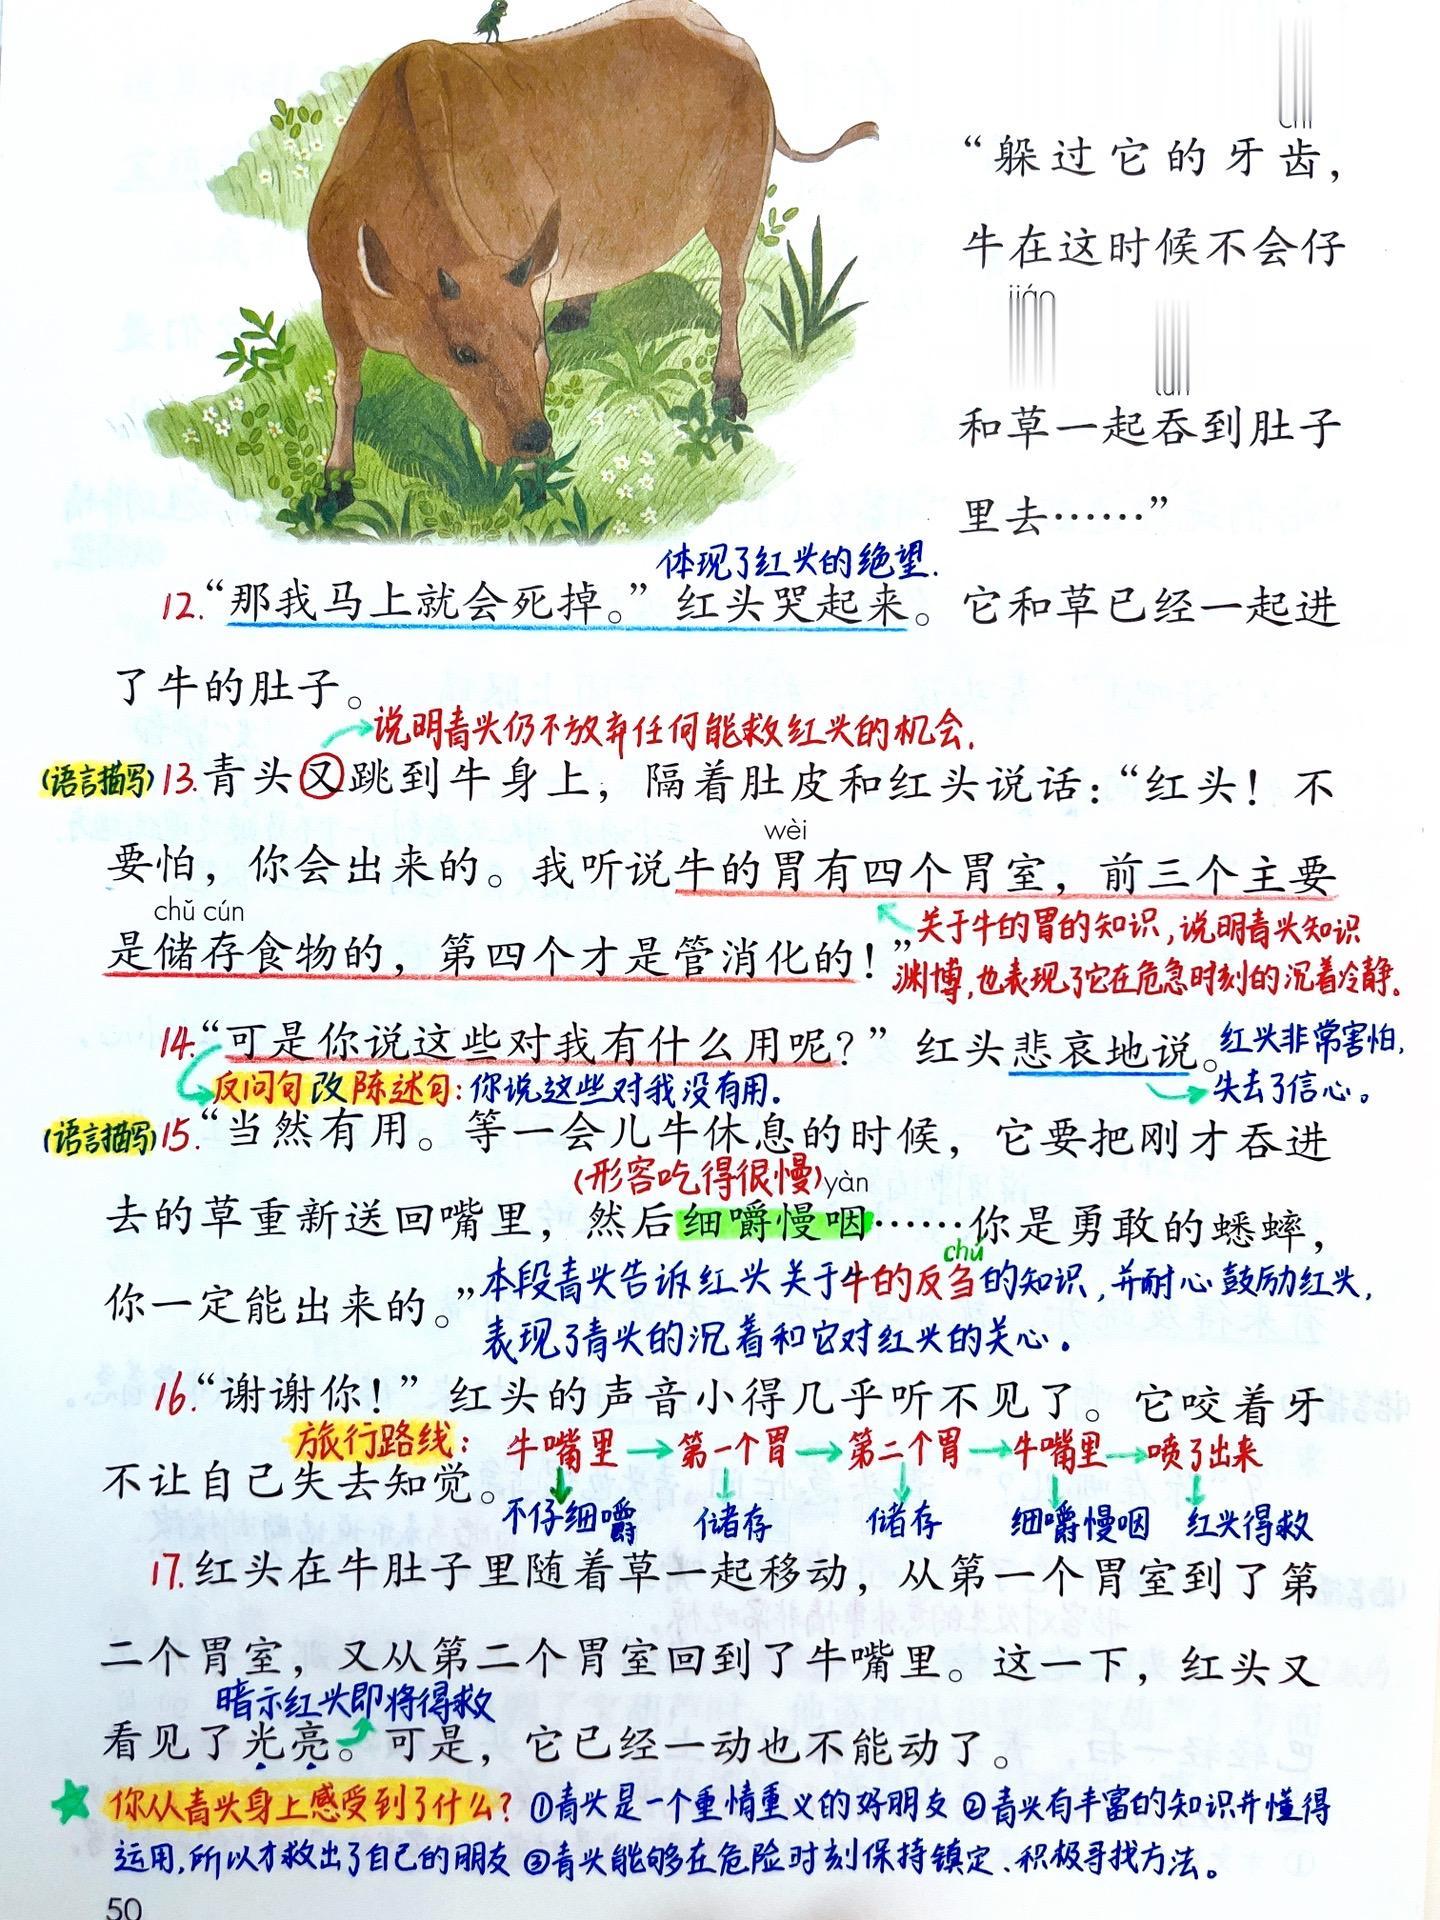 “躲过它的牙齿，
牛在这时候不会仔
jián
和草一起吞到肚子
里去……”
体现了红头的绝望.
12.“那我马上就会死掉。”红头哭起来。它和草已经一起进
了牛的肚子。
说明青头仍不放弃任何能救红头的机会.
(语言描写)13.青头又跳到牛身上，隔着肚皮和红头说话：“红头！不
wèi
要怕，你会出来的。我听说牛的胃有四个胃室，前三个主要
chǔ cún
是储存食物的，第四个才是管消化的！”
关于牛的胃的知识,说明青头知识
渊博,也表现了它在危急时刻的沉着冷静。
14.“可是你说这些对我有什么用呢？”红头悲哀地说。
红头非常害怕,
失去了信心。
反问句改陈述句：你说这些对我没有用.
(语言描写)15.“当然有用。等一会儿牛休息的时候，它要把刚才吞进
(形容吃得很慢)yàn
去的草重新送回嘴里，然后细嚼慢咽……你是勇敢的蟋蟀，
chú
你一定能出来的。”
本段青头告诉红头关于牛的反刍的知识,并耐心鼓励红头,
表现了青头的沉着和它对红头的关心。
16.“谢谢你！”红头的声音小得几乎听不见了。它咬着牙
旅行路线：牛嘴里→第一个胃→第二个胃→牛嘴里→喷了出来
不让自己失去知觉。
不仔细嚼 储存 储存 细嚼慢咽 红头得救
17.红头在牛肚子里随着草一起移动，从第一个胃室到了第
二个胃室，又从第二个胃室回到了牛嘴里。这一下，红头又
暗示红头即将得救
看见了光亮。可是，它已经一动也不能动了。
你从青头身上感受到了什么？①青头是一个重情重义的好朋友 ②青头有丰富的知识并懂得
运用,所以才救出了自己的朋友 ③青头能够在危险时刻保持镇定、积极寻找方法。
50